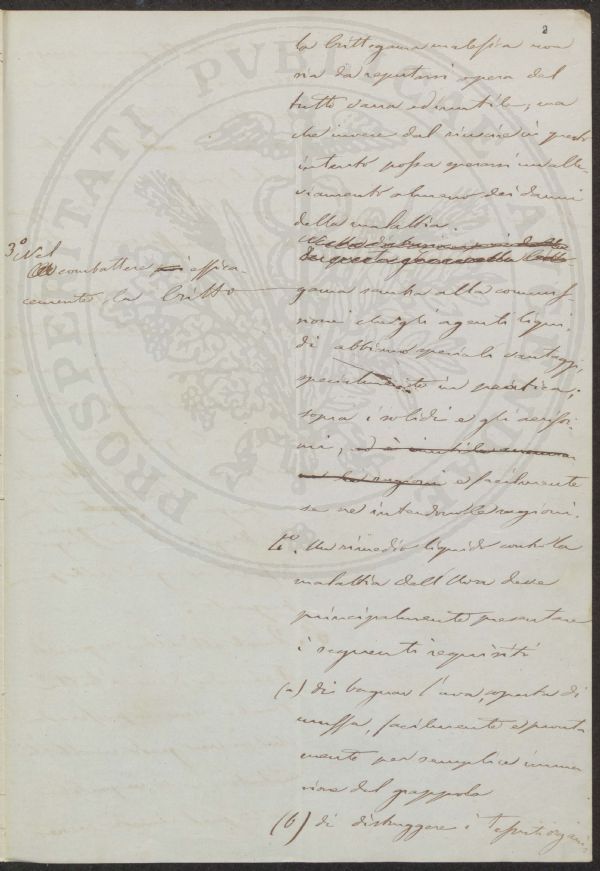 2
la crittogama malefica non
sia da reputarsi opera del
tutto vana ed inutile, ma
che invece dal riuscire in questo
intento possa sperarsi un alle-
viamento almeno dei danni
della malattia.
3° Nel
combattere effica-
cemente la critto
gama sembra alla commis-
sione che gli agenti liqui-
di abbiano speciali vantaggi,
specialmente in pratica,
sopra i solidi e gli aerifor-
mi, ed è inutile
le ragioni e facilmente
se ne intendono le ragioni.
4°. Un rimedio liquido contro la
malattia dell'Uva deve
principalmente presentare
i seguenti requisiti
(a) di bagnar l'uva, coperta di
muffa, facilmente e pronta
mente per semplice immer
sione del grappolo
(b) di distruggere i tessuti organici
PROSPERITATI PUBLICAE AUGENDAE